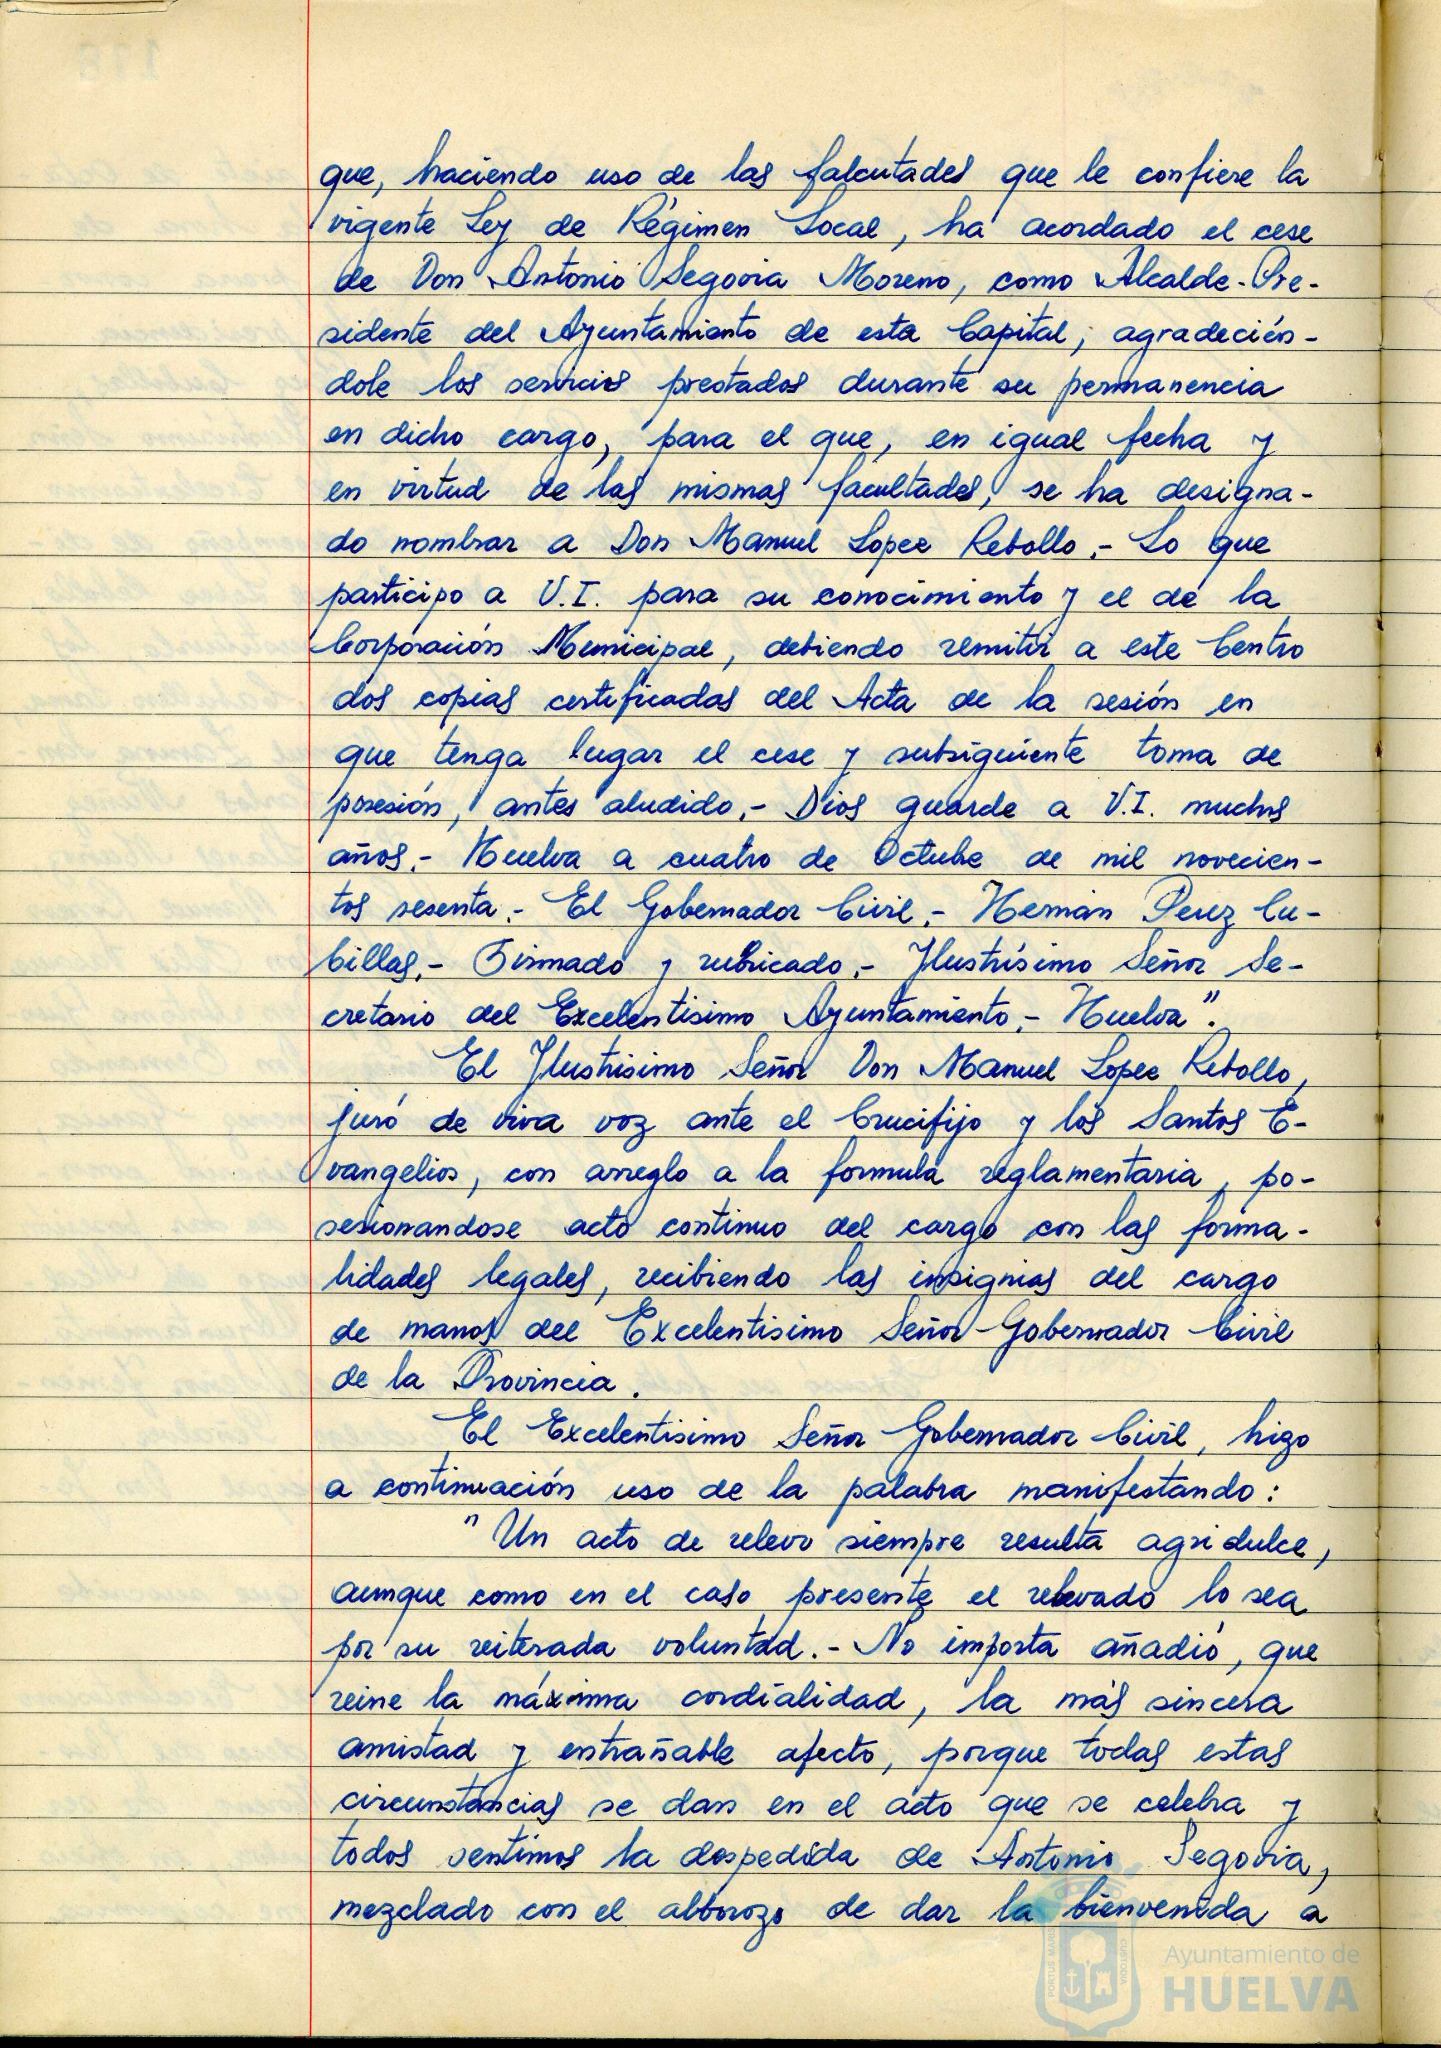 que, haciendo uso de las falcutades que le confiere la
vigente Ley de Régimen Local, ha acordado el cese
de Don Antonio Segovia Moreno, como Alcalde-Pre-
sidente del Ayuntamiento de esta Capital, agradecién-
dole los servicios prestados durante su permanencia
en dicho cargo, para el que, en igual fecha y
en virtud de las mismas facultades, se ha designa-
do nombrar a Don Manuel Lopez Rebollo.- Lo que
participo a V.I. para su conocimiento y el de la
Corporación Municipal, debiendo remitir a este Centro
dos copias certificadas del Acta de la sesión en
que tenga lugar el cese y subsiguiente toma de
posesión, antes aludido.- Dios guarde a V.I. muchos
años.- Huelva a cuatro de Octubre de mil novecien-
tos sesenta.- El Gobernador Civil.- Hernán Perez Cu-
billas.- Firmado y rubricado.- Ilustrísimo Señor Se-
cretario del Excelentisimo Ayuntamiento.- Huelva".
El Ilustrisimo Señor Don Manuel Lopez Rebollo,
juró de viva voz ante el Crucifijo y los Santos E-
vangelios, con arreglo a la formula reglamentaria, po-
sesionandose acto continuo del cargo con las forma-
lidades legales, recibiendo las insignias del cargo
de manos del Excelentisimo Señor Gobernador Civil
de la Provincia.
El Excelentisimo Señor Gobernador Civil, hizo
a continuación uso de la palabra manifestando:
"Un acto de relevo siempre resulta agridulce,
aunque como en el caso presente el relevado lo sea
por su reiterada voluntad.- No importa añadió, que
reine la máxima cordialidad, la más sincera
amistad y entrañable afecto, porque todas estas
circunstancias se dan en el acto que se celebra y
todos sentimos la despedida de Antonio Segovia,
mezclado con el alborozo de dar la bienvenida a
PORTUS MARIS
CUSTODIA
Ayuntamiento de
HUELVA